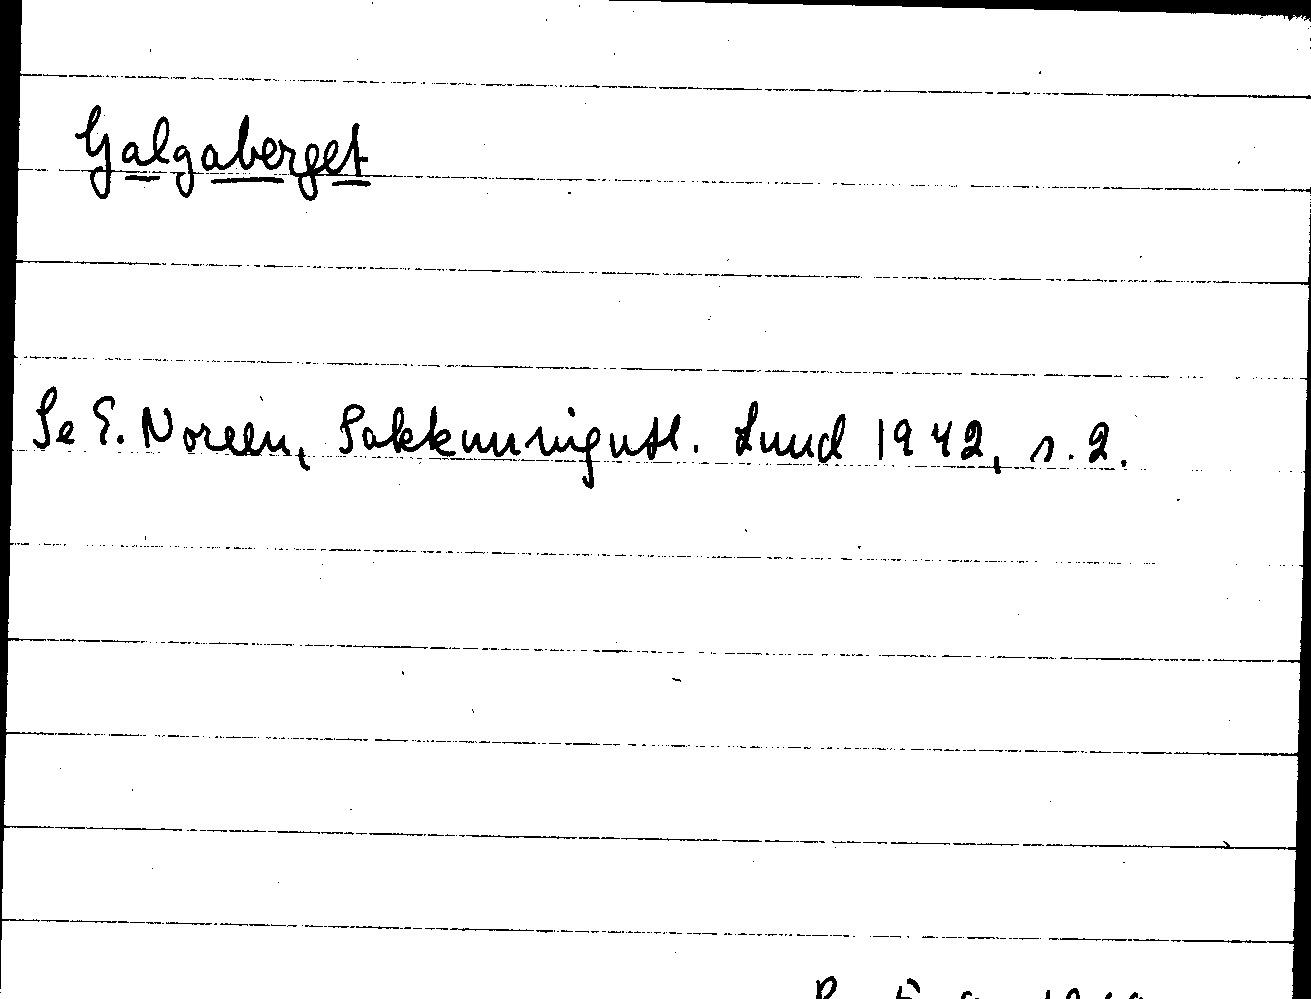 Galgaberget
Se E. Noreen, Sakkunnigutl. Lund 1942, s. 2.